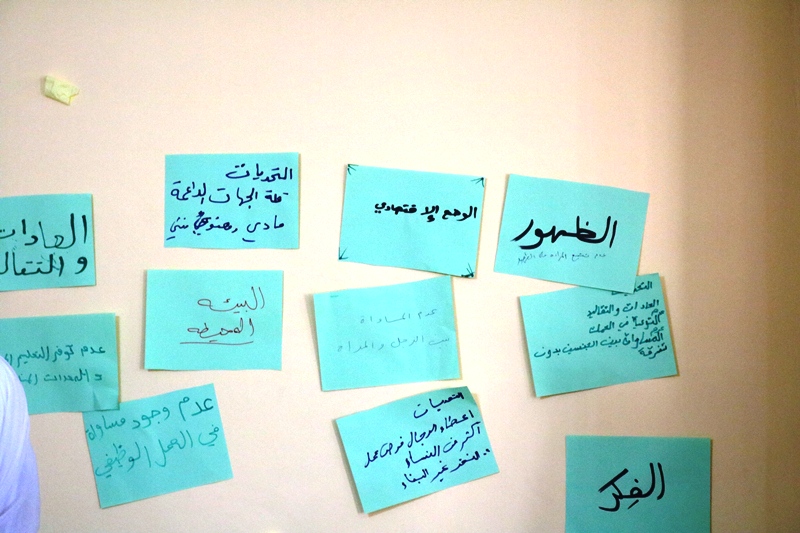 التحديات
قلة الجهات الداعمة
مادي ومعنوي
الوضع الإقتصادي
الظهور
العادات
و التقال
البيئه
المحيطه
عدم المساواة
بين الرجل والمرأة
العادات والتقاليد
في العمل
المساواة بين الجنسين بدون
تفرقة
عدم توفر التعليم
و المعدات
عدم وجود مساواة
في العمل الوظيفي
التحديات
اعطاء الرجال فرص عمل
أكثر من النساء
الفكر